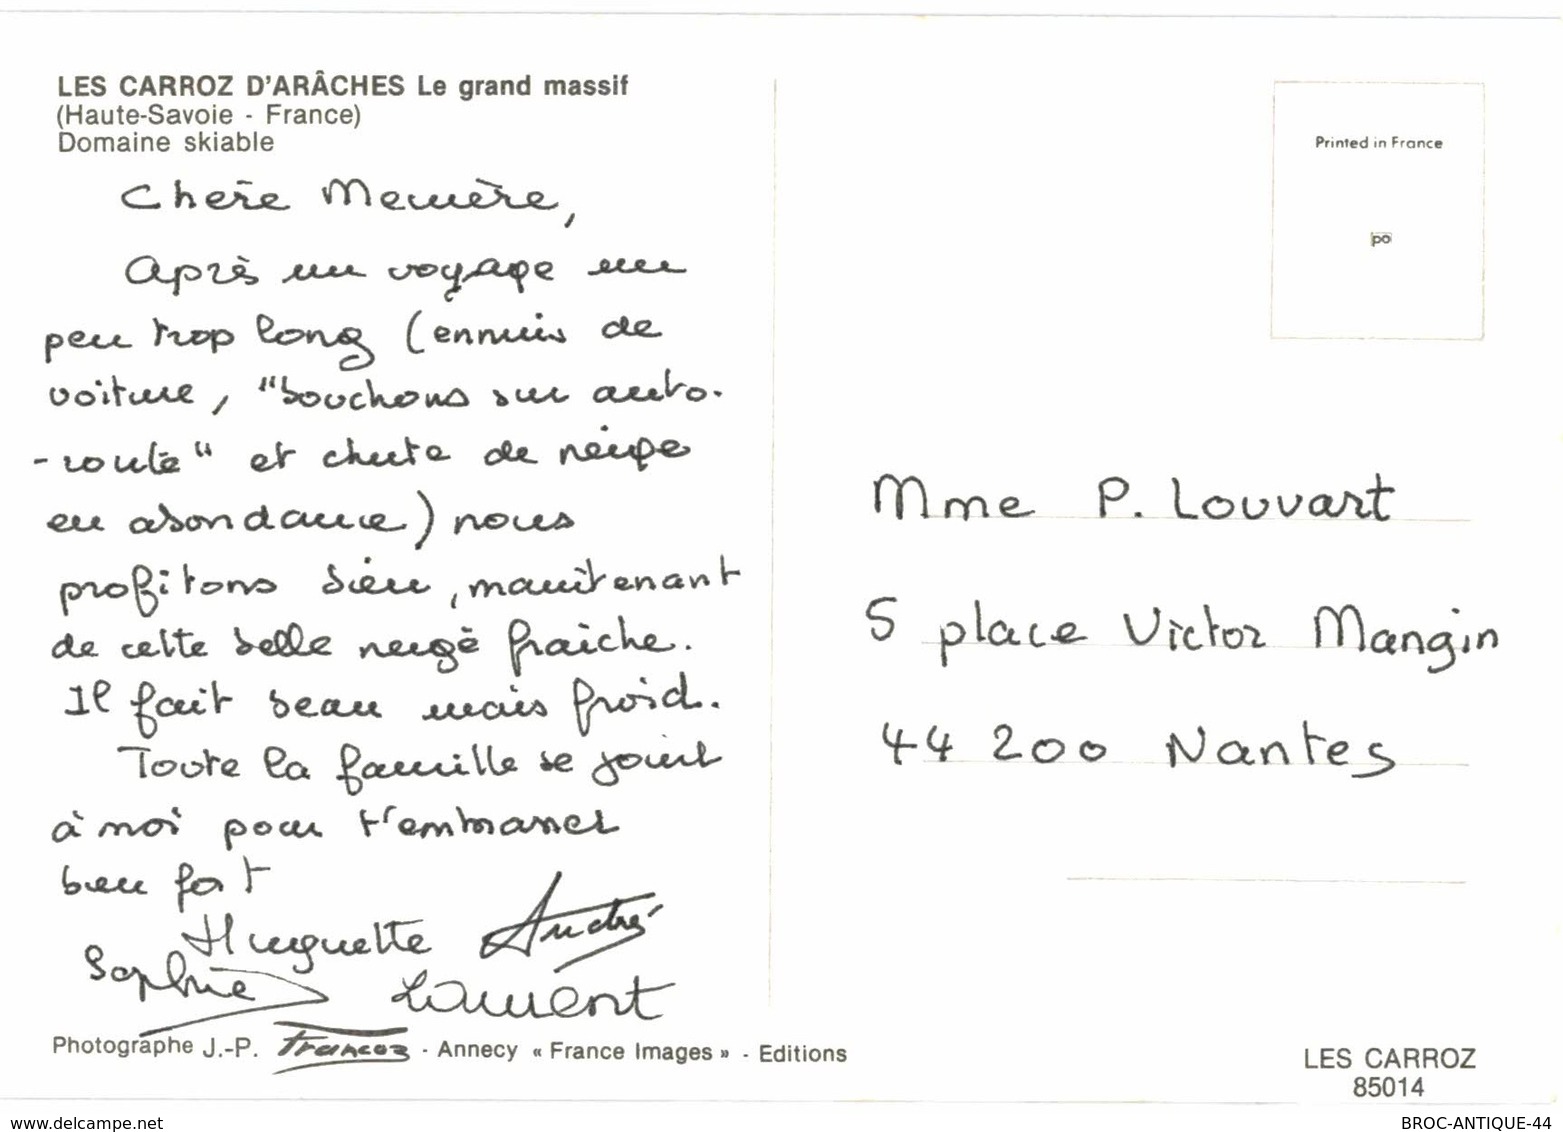 LES CARROZ D'ARÂCHES Le grand massif
(Haute-Savoie - France)
Domaine skiable
Chère Memère,
Après un voyage un
peu trop long (ennuis de
voiture, "bouchons sur auto-
-route" et chute de neige
en abondance) nous
profitons bien, maintenant
de cette belle neige fraiche.
Il fait beau mais froid.
Toute la famille se joint
à moi pour t'embrasser
bien fort
Huguette André
Sophie Laurent
Photographe J.-P. Francoz - Annecy « France Images » - Editions
Printed in France
po
Mme P. Louvart
5 place Victor Mangin
44 200 Nantes
LES CARROZ
85014
www.delcampe.net
BROC-ANTIQUE-44